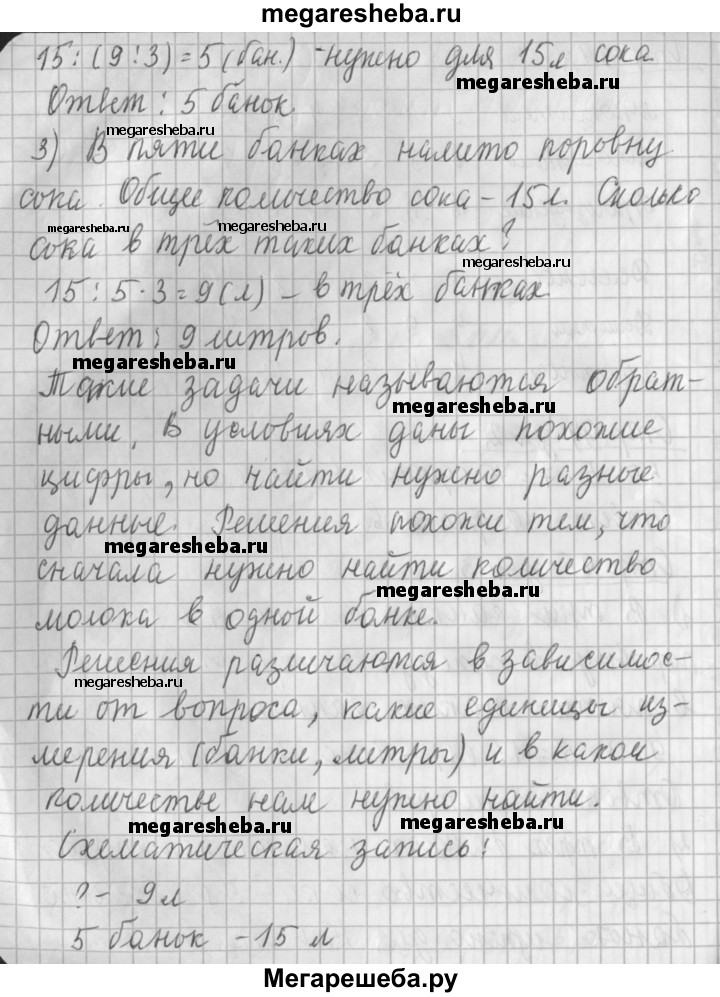 megaresheba.ru
15:(9:3)=5(бан.) - нужно для 15л сока
megaresheba.ru
Ответ: 5 банок
megaresheba.ru
3) В пяти банках налито поровну
сока. Общее количество сока - 15л. Сколько
megaresheba.ru megaresheba.ru
сока в трёх таких банках?
megaresheba.ru
15:5·3=9(л) - в трёх банках
Ответ: 9 литров.
megaresheba.ru
Такие задачи называются обрат-
megaresheba.ru
ными. В условиях даны похожие
цифры, но найти нужно разные
данные. Решения похожи тем, что
megaresheba.ru
сначала нужно найти количество
молока в одной банке.
Решения различаются в зависимос-
megaresheba.ru
ти от вопроса, какие единицы из-
мерения (банки, литры) и в каком
количестве нам нужно найти.
megaresheba.ru megaresheba.ru
Схематическая запись:
? - 9л
5 банок - 15 л
Мегарешеба.ру